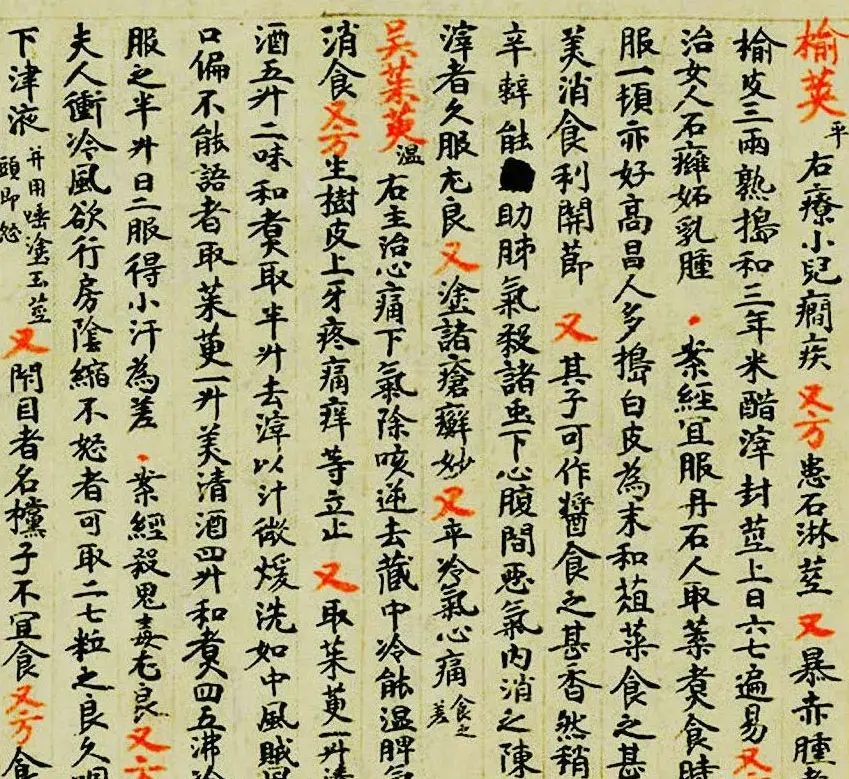 榆荚平 右療小兒癇疾 又方患石淋莖 又暴赤腫
榆皮三兩熟搗和三年米醋滓封莖上日六七遍易 又
治女人石癰妬乳腫 案經宜服丹石人取葉煮食時
服一頓亦好高昌人多搗白皮為末和葅菜食之甚
美消食利關節 又其子可作醬食之甚香然稍
辛辣能助肺氣殺諸虫下心腹間惡氣內消之陳
滓者久服尤良 又塗諸瘡癬妙 又卒冷氣心痛 食之差
吳茱萸溫 右主治心痛下氣除咳逆去藏中冷能溫脾氣
消食 又方生樹皮上牙疼痛痒等立止 又取茱萸一升清
酒五升二味和煮取半升去滓以汁微煖洗如中風賊
口偏不能語者取茱萸一升美清酒四升和煮四五沸冷
服之半升日二服得小汗為差 案經殺鬼毒尤良 又方
夫人衝冷風欲行房陰縮不怒者可取二七粒之良久咽
下津液 并用唾塗玉莖頭即怒 又閉目者名欓子不宜食 又方食